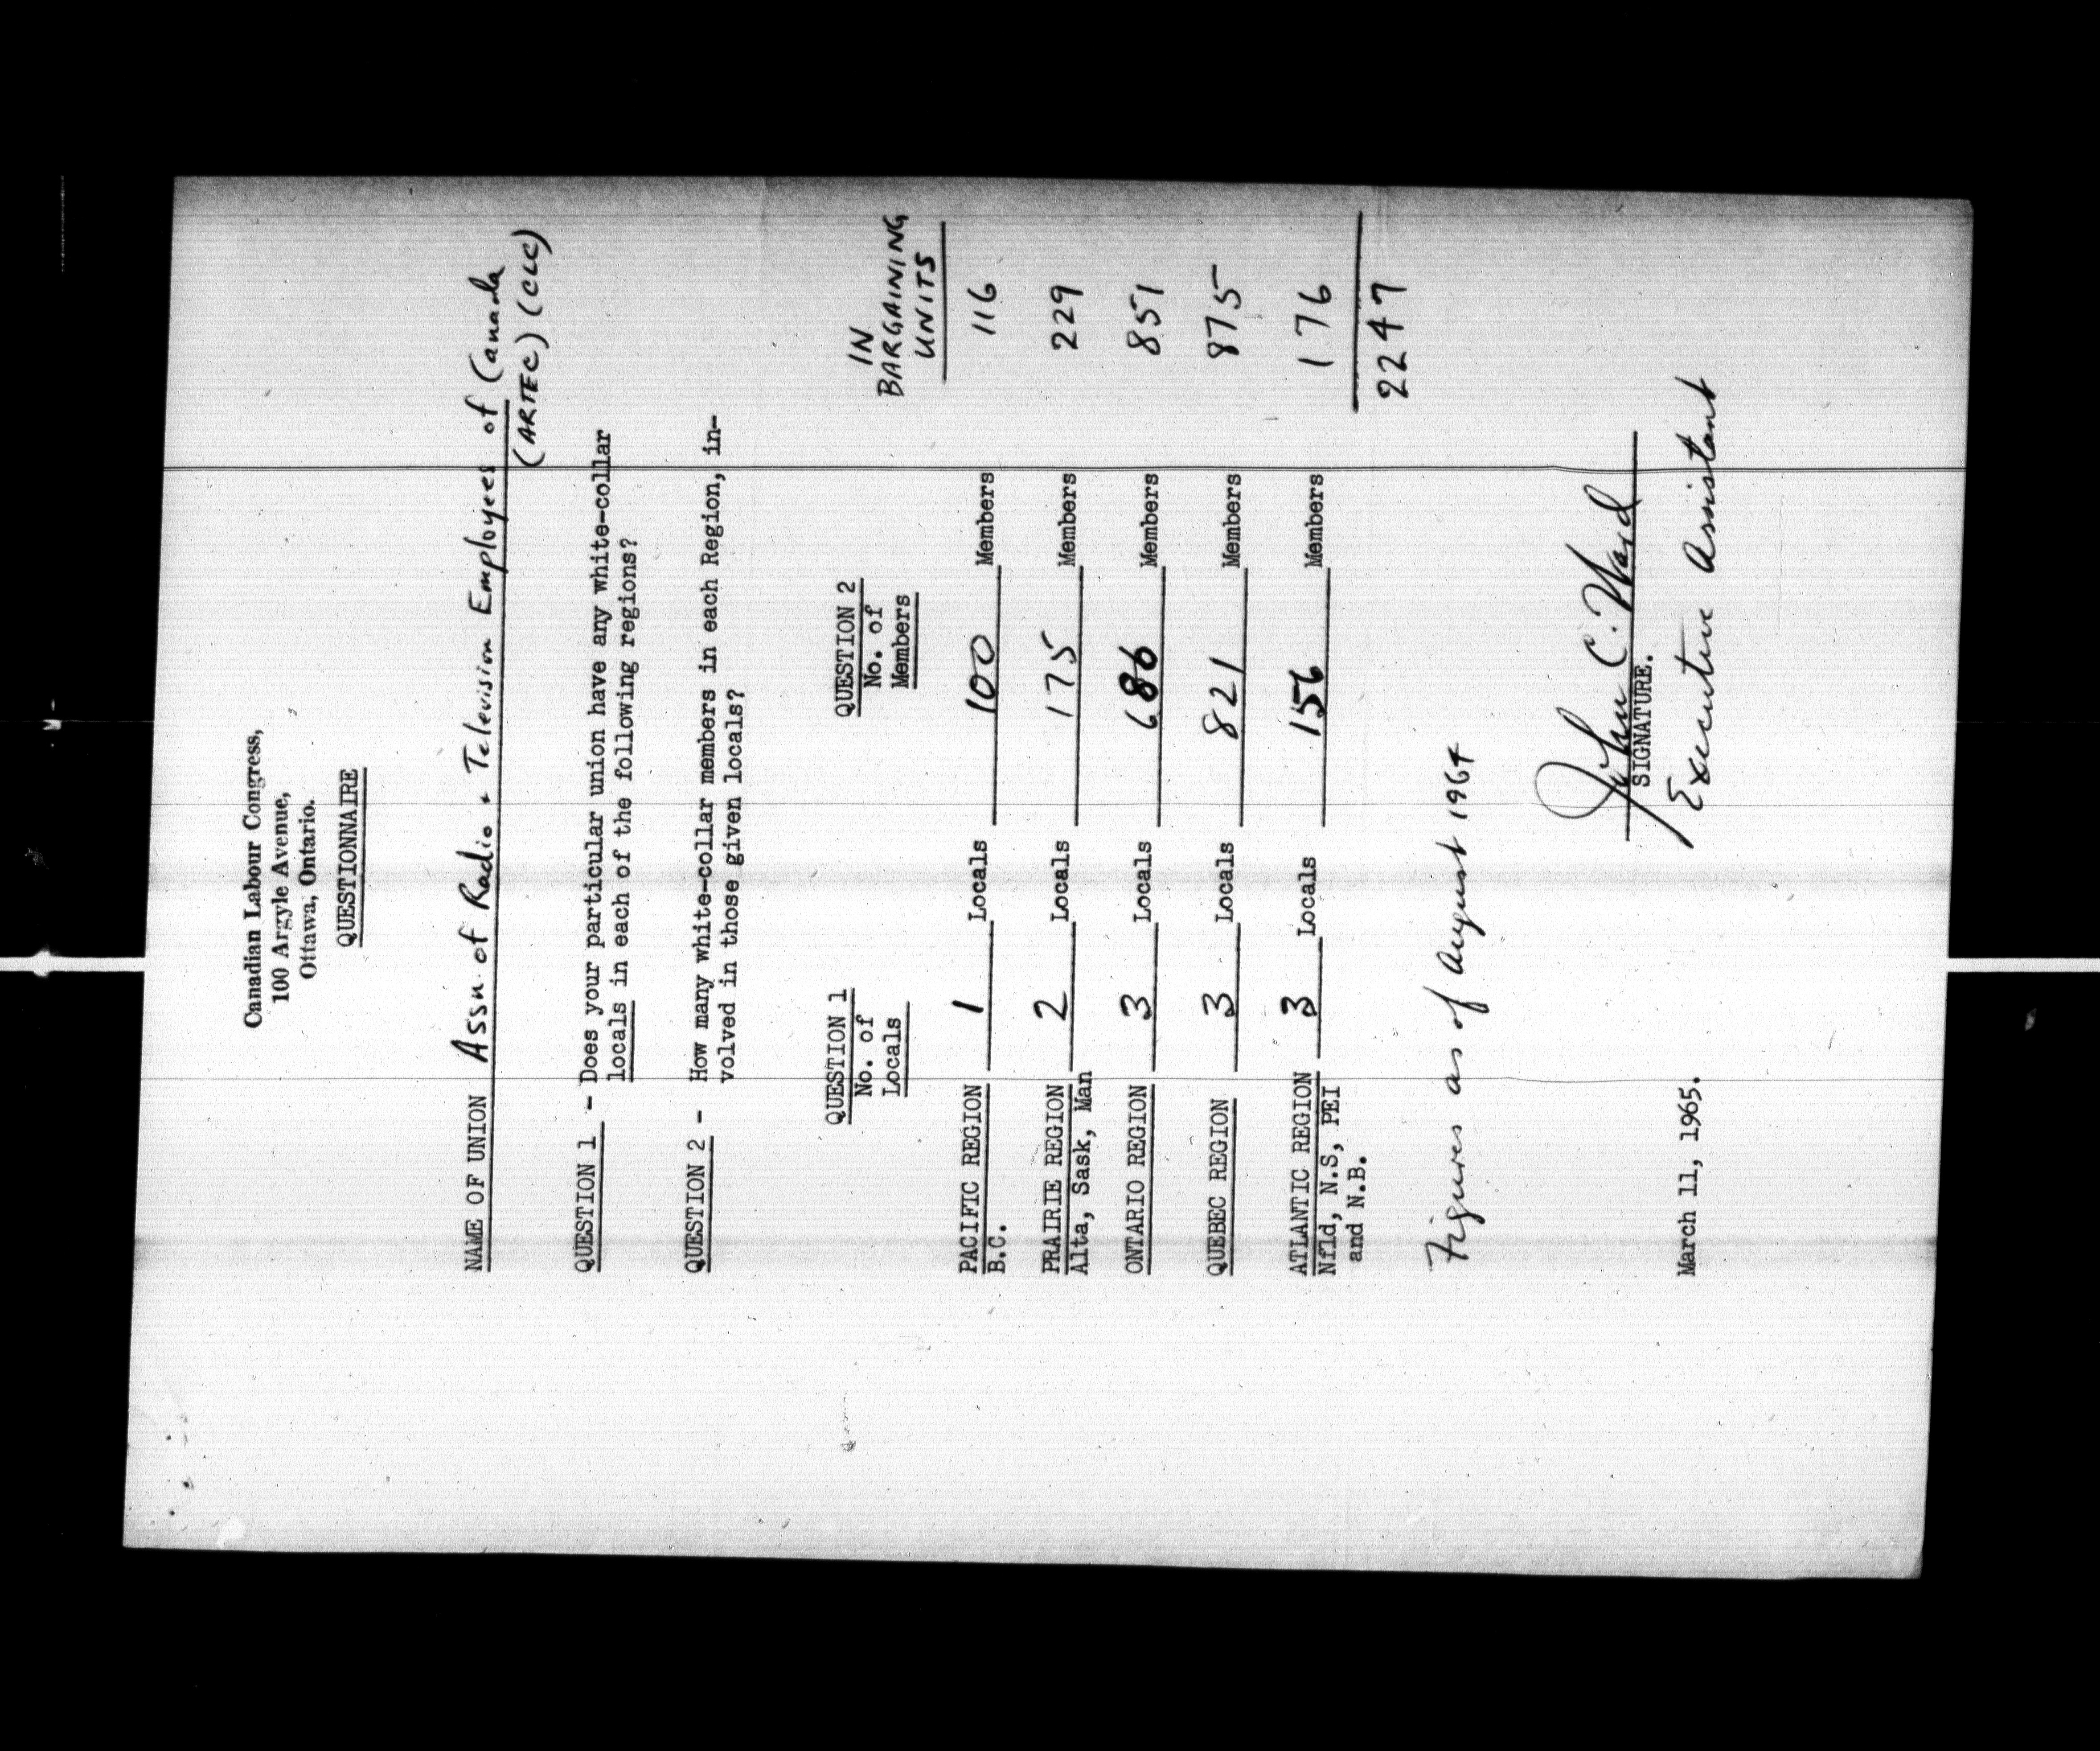 Canadian Labour Congress,
100 Argyle Avenue,
Ottawa, Ontario.
QUESTIONNAIRE
NAME OF UNION Assn. of Radio & Television Employees of Canada
(ARTEC) (CLC)
QUESTION 1 - Does your particular union have any white-collar
locals in each of the following regions?
QUESTION 2 - How many white-collar members in each Region, in-
volved in those given locals?
QUESTION 1 QUESTION 2 IN
No. of No. of BARGAINING
Locals Members UNITS
PACIFIC REGION 1 Locals 100 Members 116
B.C.
PRAIRIE REGION 2 Locals 175 Members 229
Alta, Sask, Man
ONTARIO REGION 3 Locals 686 Members 851
QUEBEC REGION 3 Locals 821 Members 875
ATLANTIC REGION 3 Locals 156 Members 176
Nfld, N.S, PEI
and N.B.
2247
Figures as of August 1964
John C. Ward
SIGNATURE.
Executive Assistant
March 11, 1965.